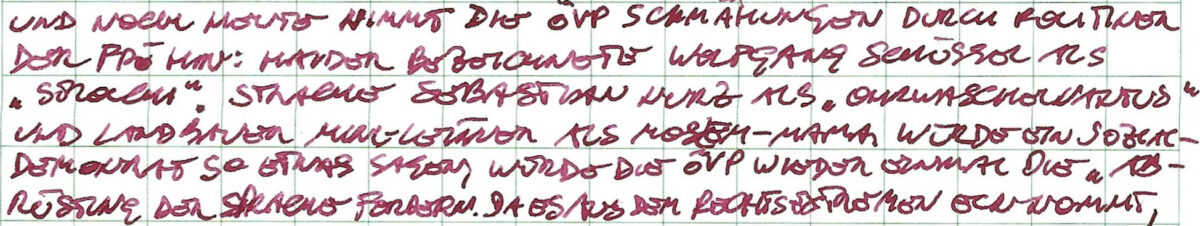 UND NOCH HEUTE NIMMT DIE ÖVP SCHMÄHUNGEN DURCH POLITIKER
DER FPÖ HIN: HAIDER BEZEICHNETE WOLFGANG SCHÜSSEL ALS
„STROLCHI“. STRACHE SEBASTIAN KURZ ALS „OHRWASCHELKAKTUS“
UND LANDBAUER MIKL-LEITNER ALS MOSLEM-MAMA. WÜRDE EIN SOZIAL-
DEMOKRAT SO ETWAS SAGEN, WÜRDE DIE ÖVP WIEDER EINMAL DIE „AB-
RÜSTUNG DER SPRACHE FORDERN. DA ES AUS DEM RECHTSEXTREMEN ECK KOMMT,